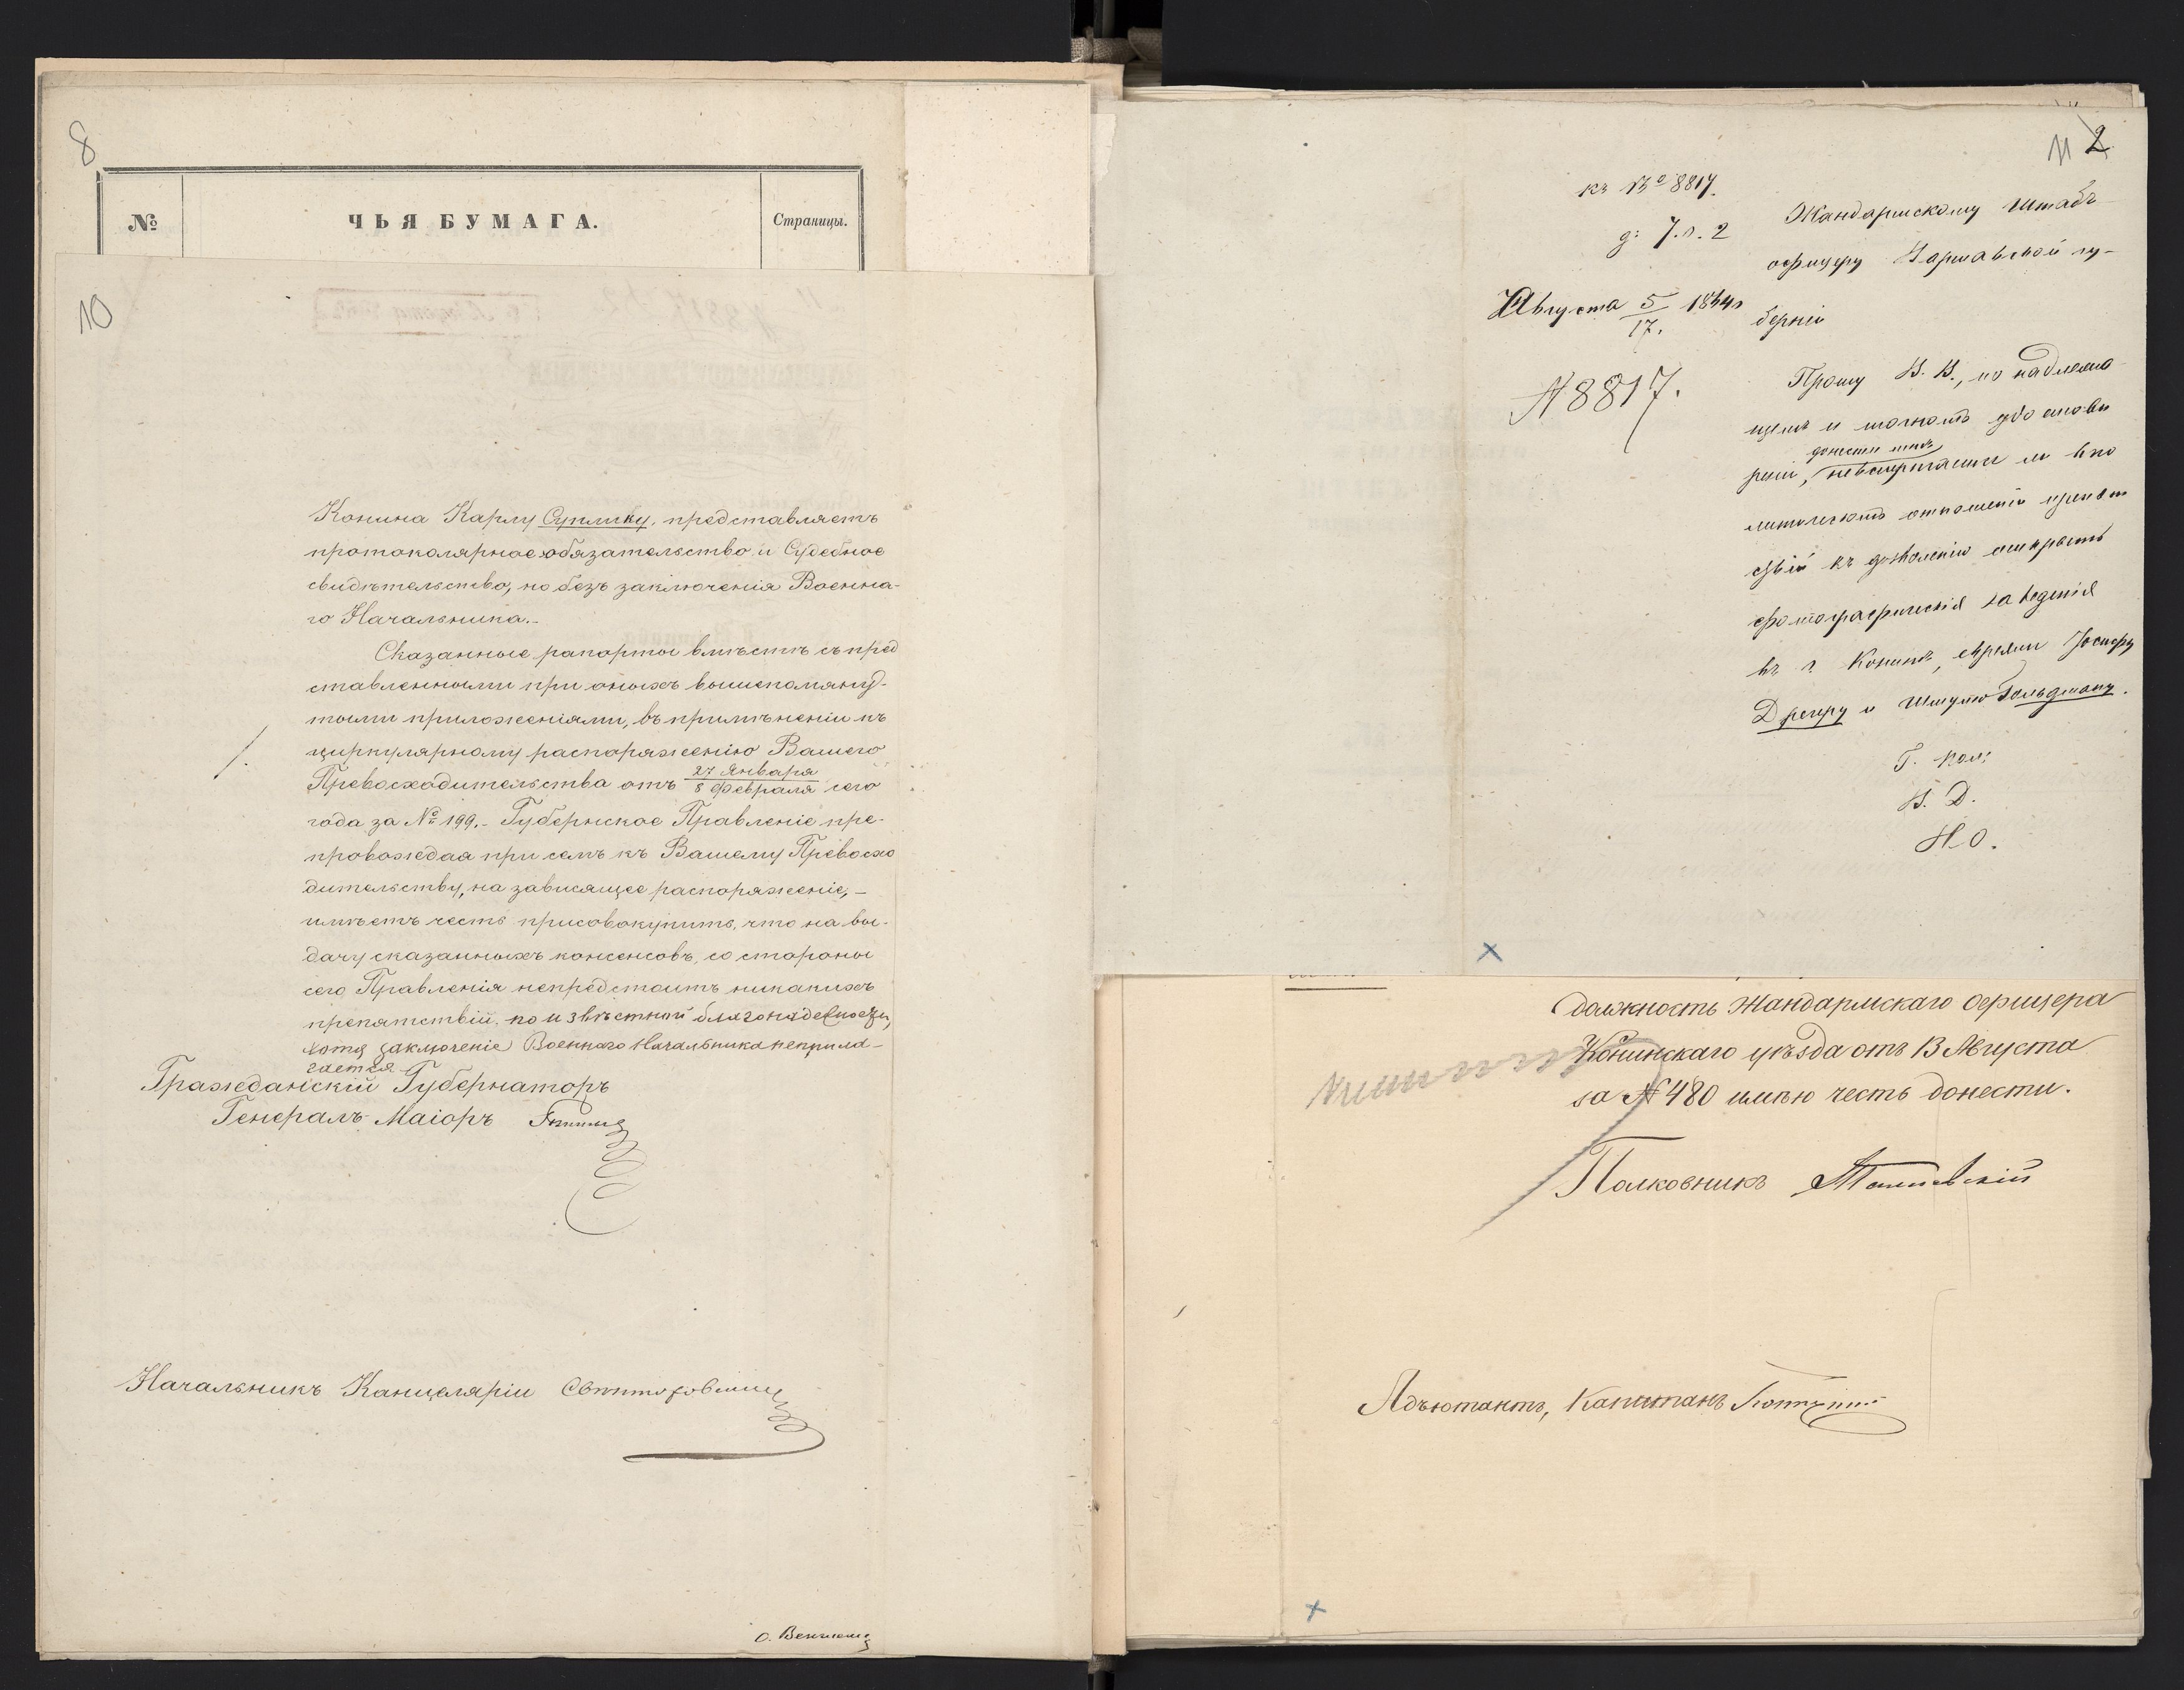 8
№
ЧЬЯ БУМАГА.
Страницы.
10
Конина Карлу Суплику, представляетъ
протоколярное обязательство и Судебное
свидѣтельство, но безъ заключенія Военна-
го Начальника.-
Сказанные рапорты вмѣстѣ съ пред
ставленными при оныхъ вышепомяну-
тыми приложеніями, въ примѣненіи къ
циркулярному распоряженію Вашего
Превосходительства отъ 27 Января / 8 Февраля сего
года за № 199.- Губернское Правленіе пре-
провождая при семъ къ Вашему Превосхо
дительству, на зависящее распоряженіе,-
имѣетъ честь присовокупить, что на вы-
дачу сказанныхъ консенсовъ, со стороны
сего Правленія непредстоитъ никакихъ
препятствій по извѣстной благонадежности,
хотя заключеніе Военнаго Начальника неприла-
гается
Гражданскій Губернаторъ
Генералъ-Маіоръ
Начальникъ Канцеляріи
О.
11 2
къ № 8817.
д: 7. л. 2
Августа 5/17. 1864 г
N 8817.
Жандармскому Штабъ
офицеру Варшавской гу-
берніи
Прошу В. В., по надлежа
щемъ и точномъ удостовѣ
реніи, донести мнѣ, невстрѣчается ли въ по
литическомъ отношеніи препят
ствій къ дозволенію открыть
фотографическія заведенія
въ г. Конинѣ, евреями Іосифу
Дрегеру и Шмулю Гольдману.
Г. Пол:
В. Д.
Н. О.
должность Жандармскаго Офицера
Конинскаго уѣзда отъ 13 Августа
за N 480 имѣю честь донести.
Полковникъ
Адъютантъ, Капитанъ